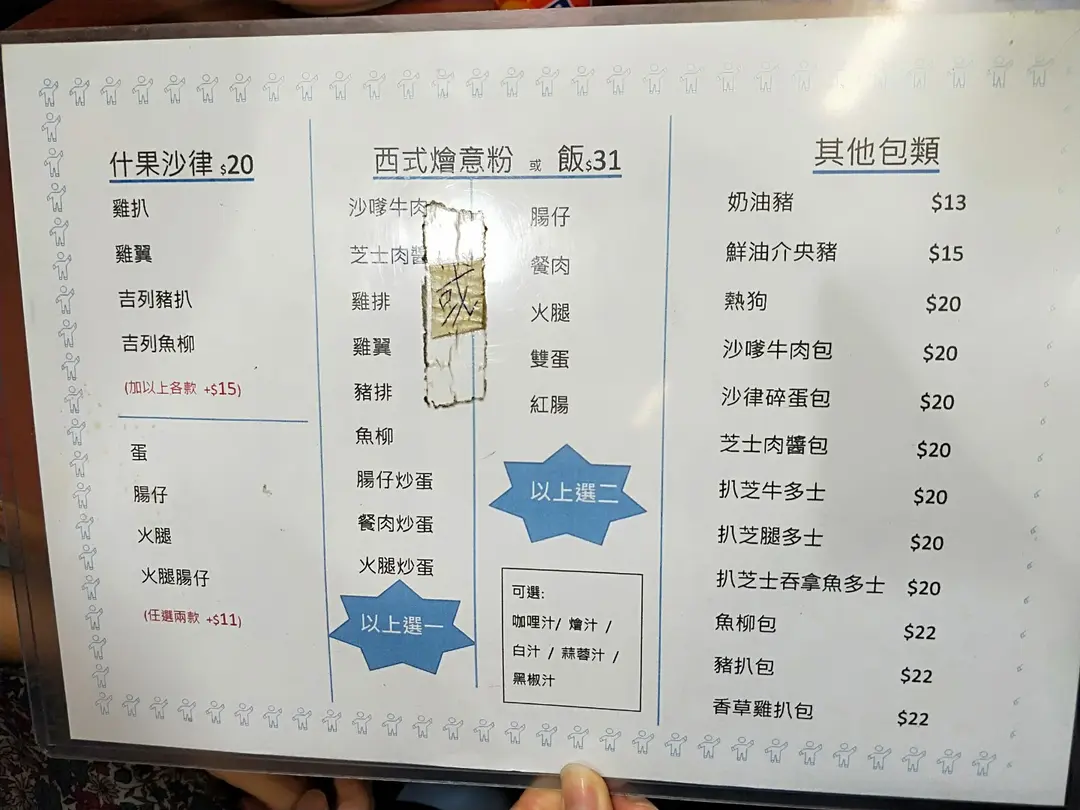 什果沙律 $20
雞扒
雞翼
吉列豬扒
吉列魚柳
(加以上各款 +$15)
蛋
腸仔
火腿
火腿腸仔
(任選兩款 +$11)
西式燴意粉 或 飯$31
沙嗲牛肉
芝士肉醬
雞排
雞翼
豬排
魚柳
腸仔炒蛋
餐肉炒蛋
火腿炒蛋
以上選一
或
腸仔
餐肉
火腿
雙蛋
紅腸
以上選二
可選:
咖哩汁/ 燴汁 /
白汁 / 蒜蓉汁 /
黑椒汁
其他包類
奶油豬 $13
鮮油介央豬 $15
熱狗 $20
沙嗲牛肉包 $20
沙律碎蛋包 $20
芝士肉醬包 $20
扒芝牛多士 $20
扒芝腿多士 $20
扒芝士吞拿魚多士 $20
魚柳包 $22
豬扒包 $22
香草雞扒包 $22